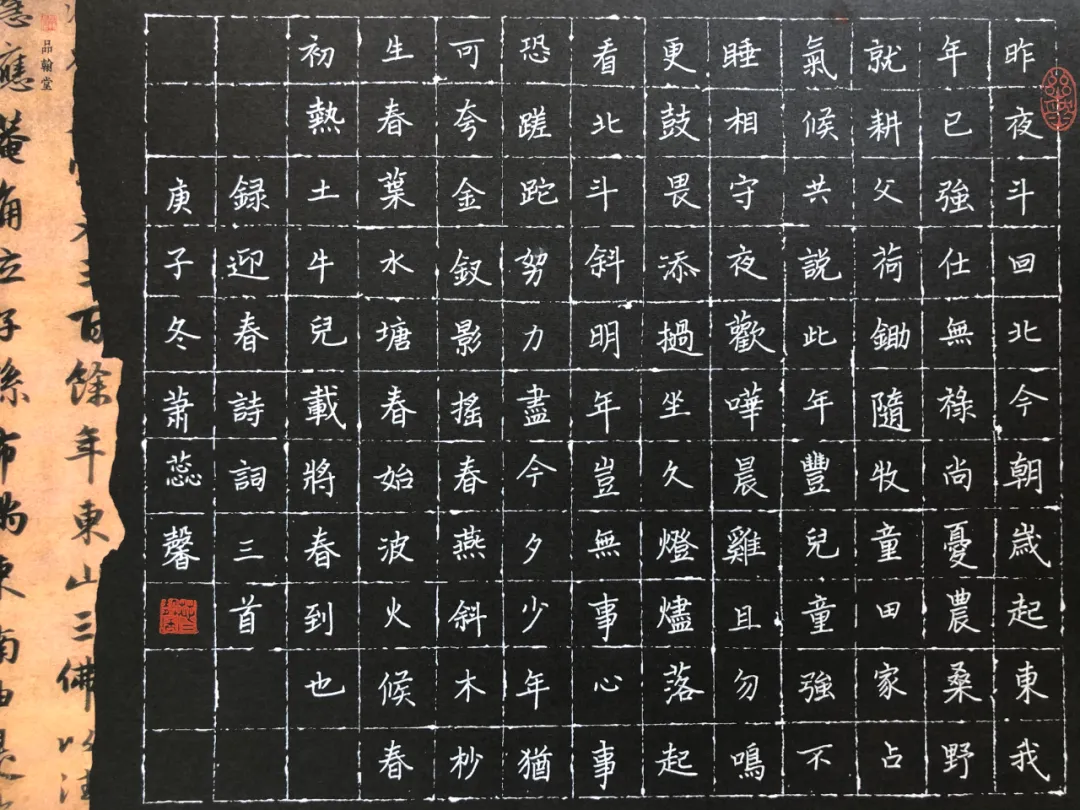 昨夜斗回北今朝歲起東我
年已強仕無祿尚憂農桑野
就耕父荷鋤隨牧童田家占
氣候共說此年豐兒童強不
睡相守夜歡嘩晨雞且勿鳴
更鼓畏添撾坐久燈燼落起
看北斗斜明年豈無事心事
恐蹉跎努力盡今夕少年猶
可夸金釵影搖春燕斜木杪
生春葉水塘春始波火候春
初熱土牛兒載將春到也
録迎春詩詞三首
庚子冬蕭蕊馨
百餘年東山三佛
品翰堂
應菴角立子孫布東南